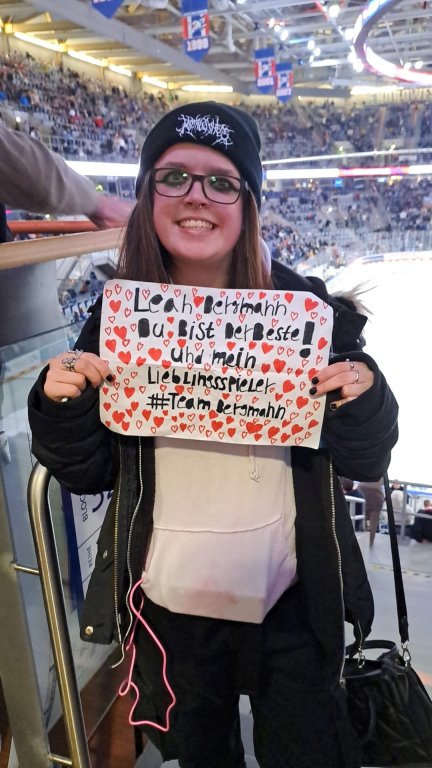 Leah Bergmann
Du bist der Beste!
und mein
LIEBLINGSSPIELER
#Team Bergmann